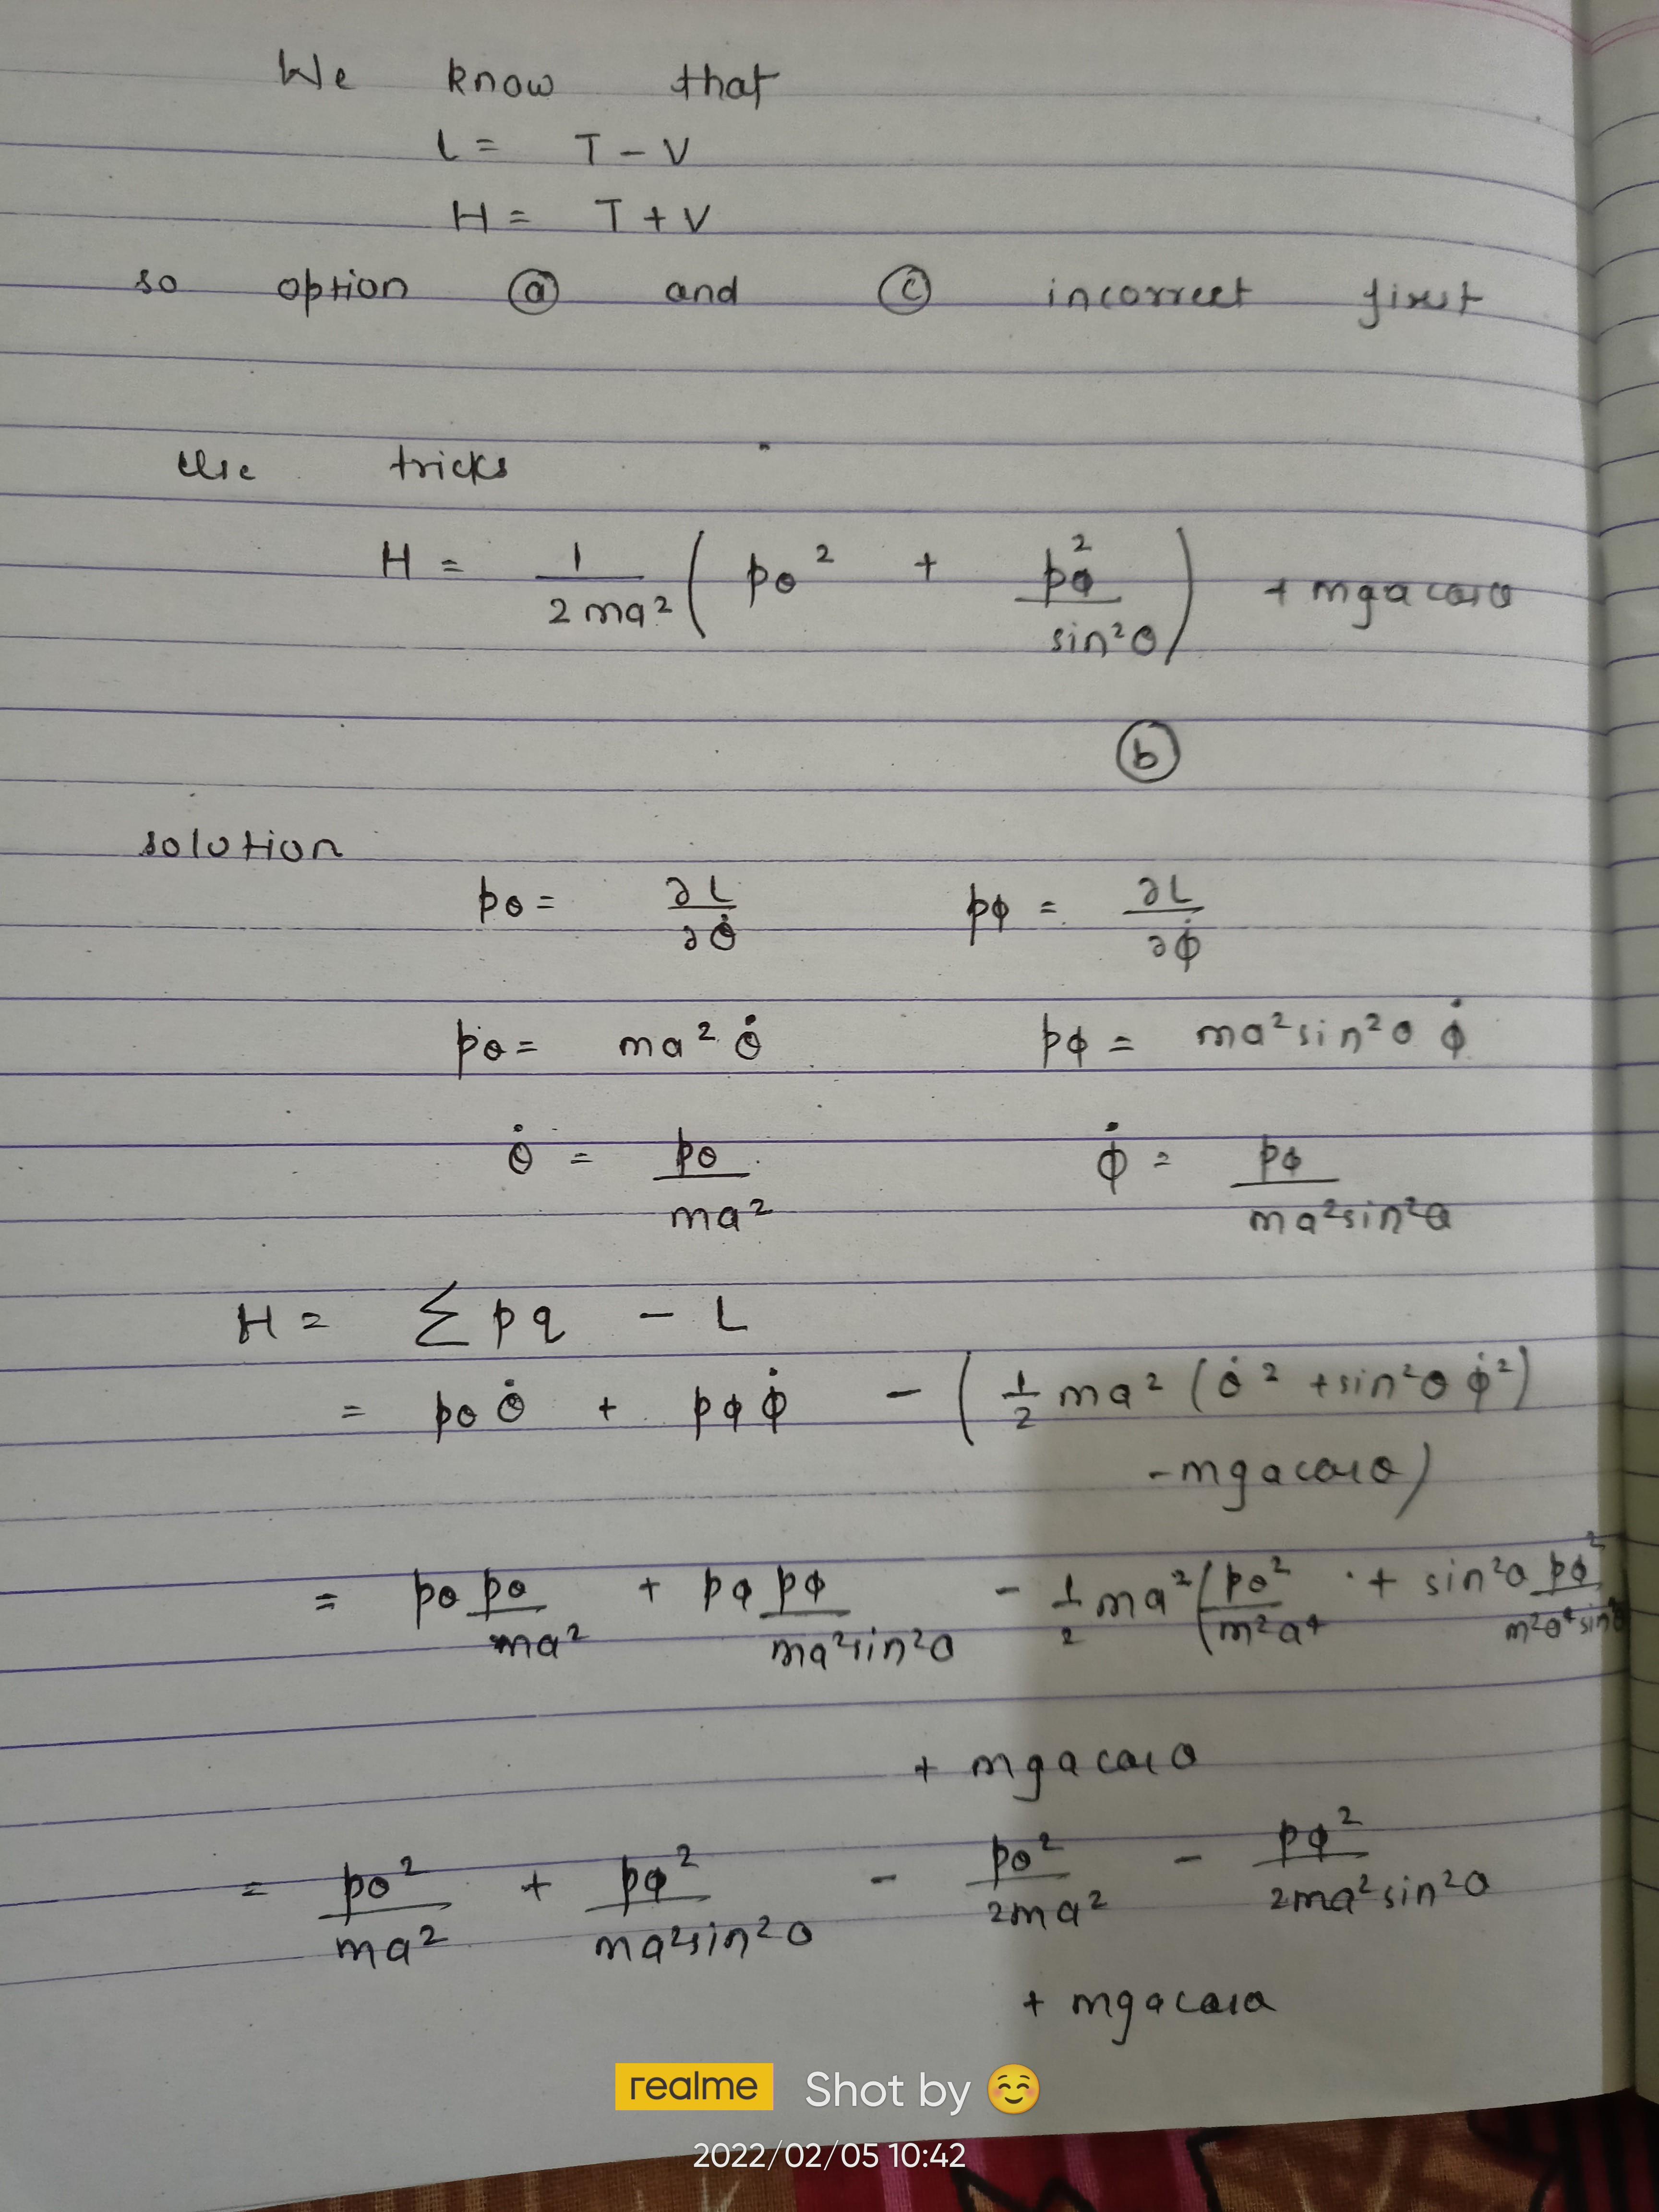 We know that
L = T - V
H = T + V
so option ⓐ and ⓒ incorrect first
Use tricks
H = 1/2ma² ( pθ² + pϕ²/sin²θ ) + mga cosθ
ⓑ
solution
pθ = ∂L/∂θ̇    pϕ = ∂L/∂ϕ̇
pθ = ma² θ̇    pϕ = ma² sin²θ ϕ̇
θ̇ = pθ/ma²    ϕ̇ = pϕ/ma²sin²θ
H = Σ pq - L
= pθ θ̇ + pϕ ϕ̇ - ( 1/2 ma² ( θ̇² + sin²θ ϕ̇² )
- mga cosθ )
= pθ pθ/ma² + pϕ pϕ/ma²sin²θ - 1/2 ma² ( pθ²/m²a⁴ + sin²θ pϕ²/m²a⁴sin⁴θ
+ mga cosθ
= pθ²/ma² + pϕ²/ma²sin²θ - pθ²/2ma² - pϕ²/2ma²sin²θ
+ mga cosθ
realme Shot by 😊
2022/02/05 10:42